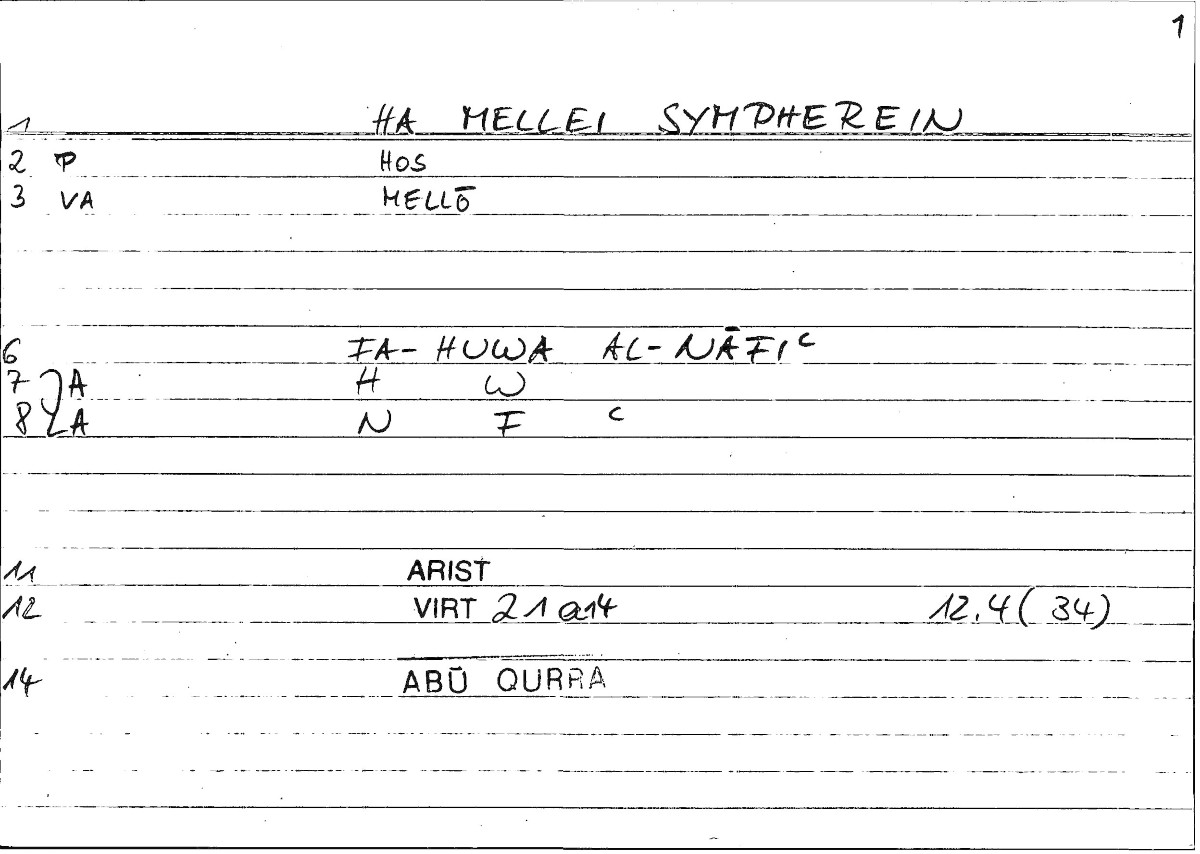 1
1 HA MELLEI SYMPHEREIN
2 P HOS
3 VA MELLŌ
6 FA- HUWA AL- NĀFIʿ
7 A H W
8 A N F ʿ
11 ARIST
12 VIRT 21a14 12.4(34)
14 ABŪ QURRA